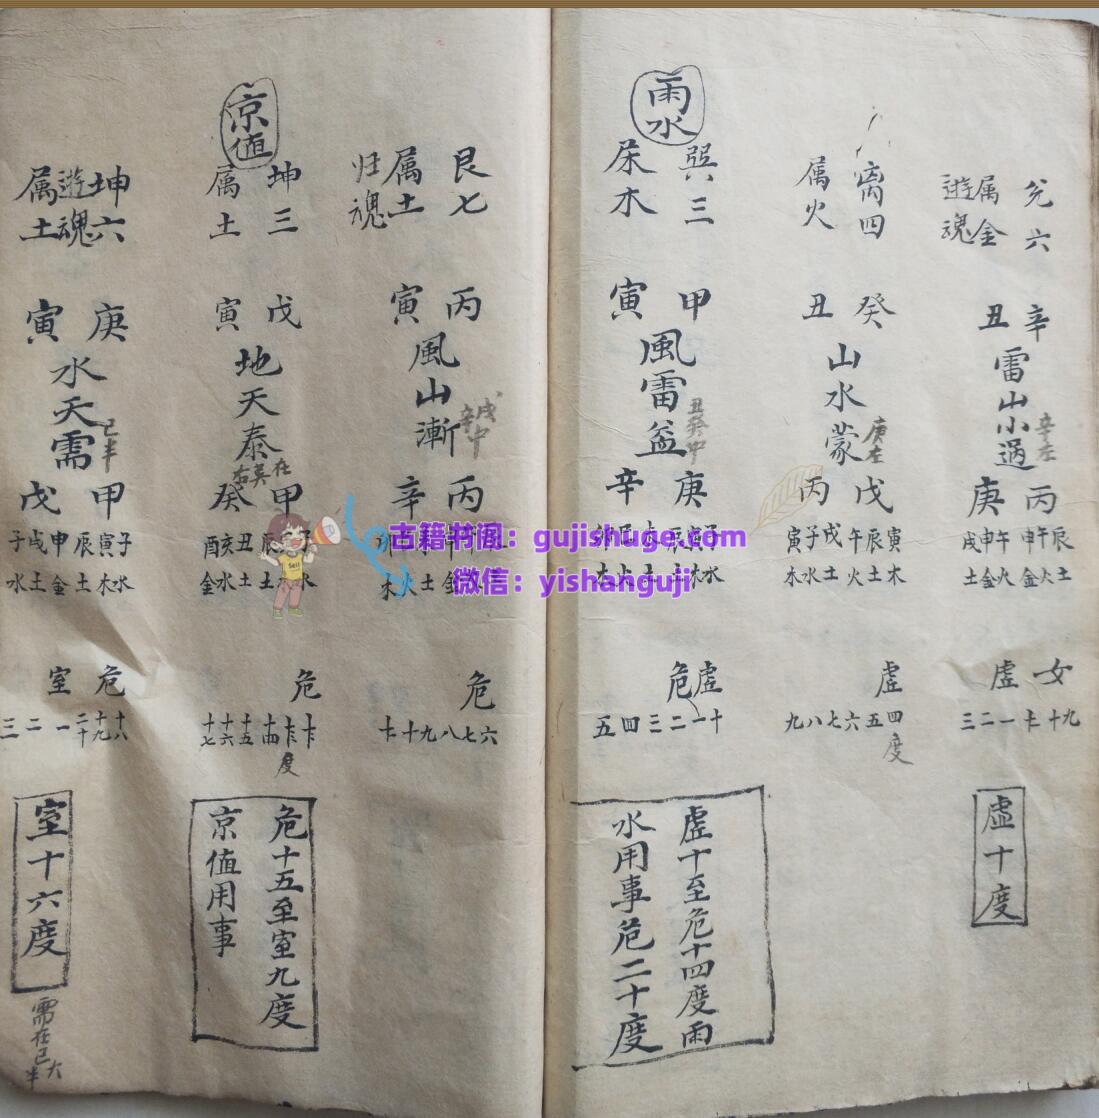 兊六
属金
遊魂
辛
丑
雷山小過
辛左
丙
庚
辰午申午申戌
土火金火金土
女
虚
九十十一一二三
虚十度
离四
属火
癸
丑
山水蒙
庚左
戊
丙
寅辰午戌子寅
木土火土水木
虚
四五六七八九
度
雨水
巽三
属木
甲
寅
風雷益
丑癸中
庚
辛
子寅辰
水木土
虚
危
十一二三四五
虚十至危十四度雨
水用事危二十度
艮七
属土
归魂
丙
寅
風山漸
丙
辛
危
六七八九十
京值
坤三
属土
戊
寅
地天泰
甲
癸
丑亥酉
土水金
危
十四十五十六十七
度
危十五至室九度
京值用事
坤六
遊魂
属土
庚
寅
水天需
巳半
甲
戊
子寅辰申戌子
水木土金土水
危
室
十八十九二十一二三
室十六度
需在巳半
古籍书阁：gujishuge.com
微信：yishanguji